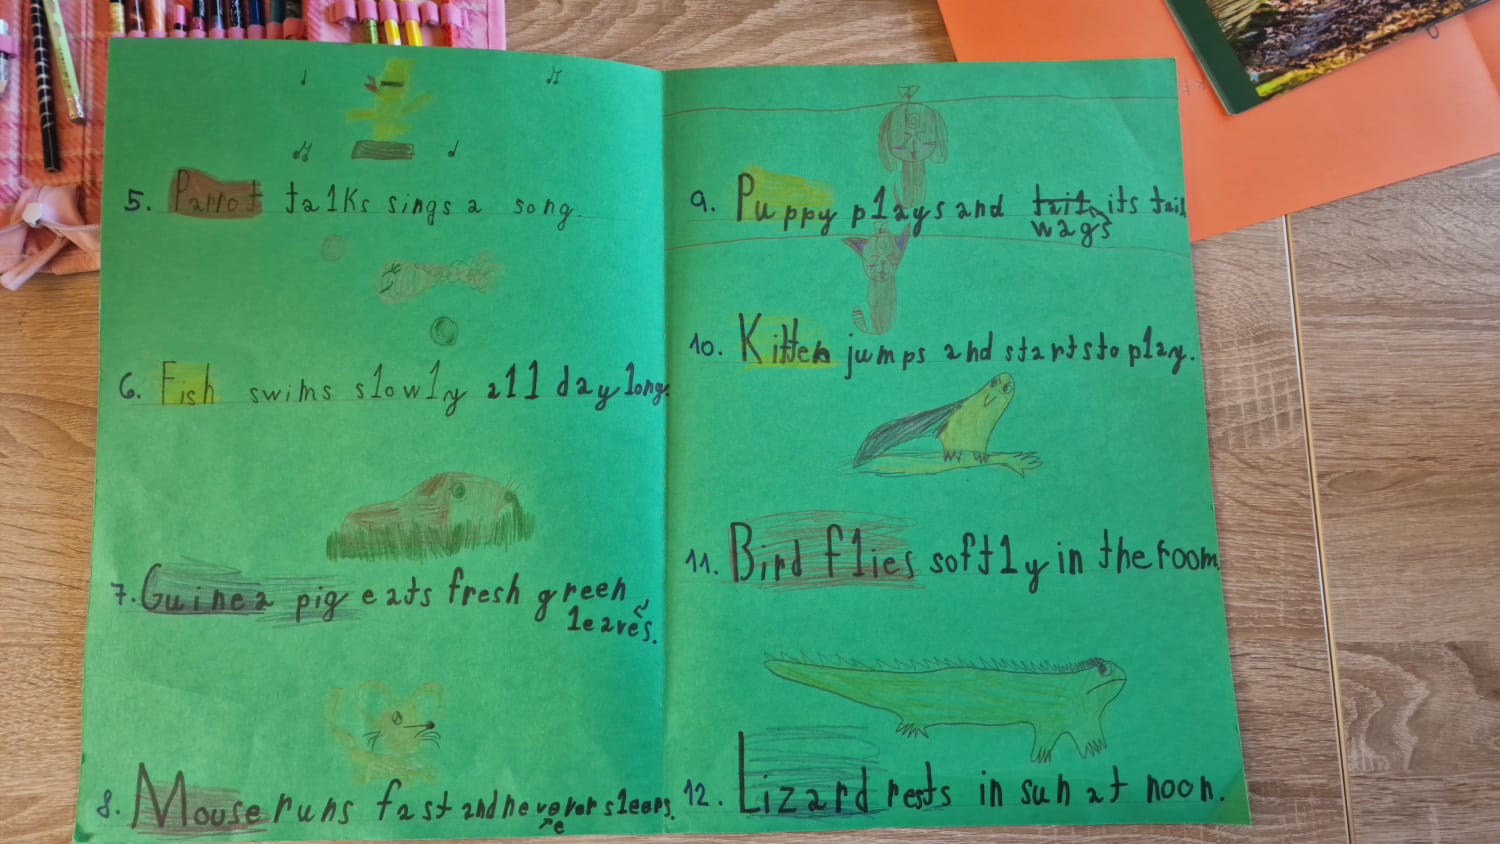 5. Parrot talks sings a song.
6. Fish swims slowly all day long.
7. Guinea pig eats fresh green
leaves.
8. Mouse runs fast and never sleeps.
e
9. Puppy plays and tail its tail
wags
10. Kitten jumps and starts to play.
11. Bird flies softly in the room
12. Lizard rests in sun at noon.